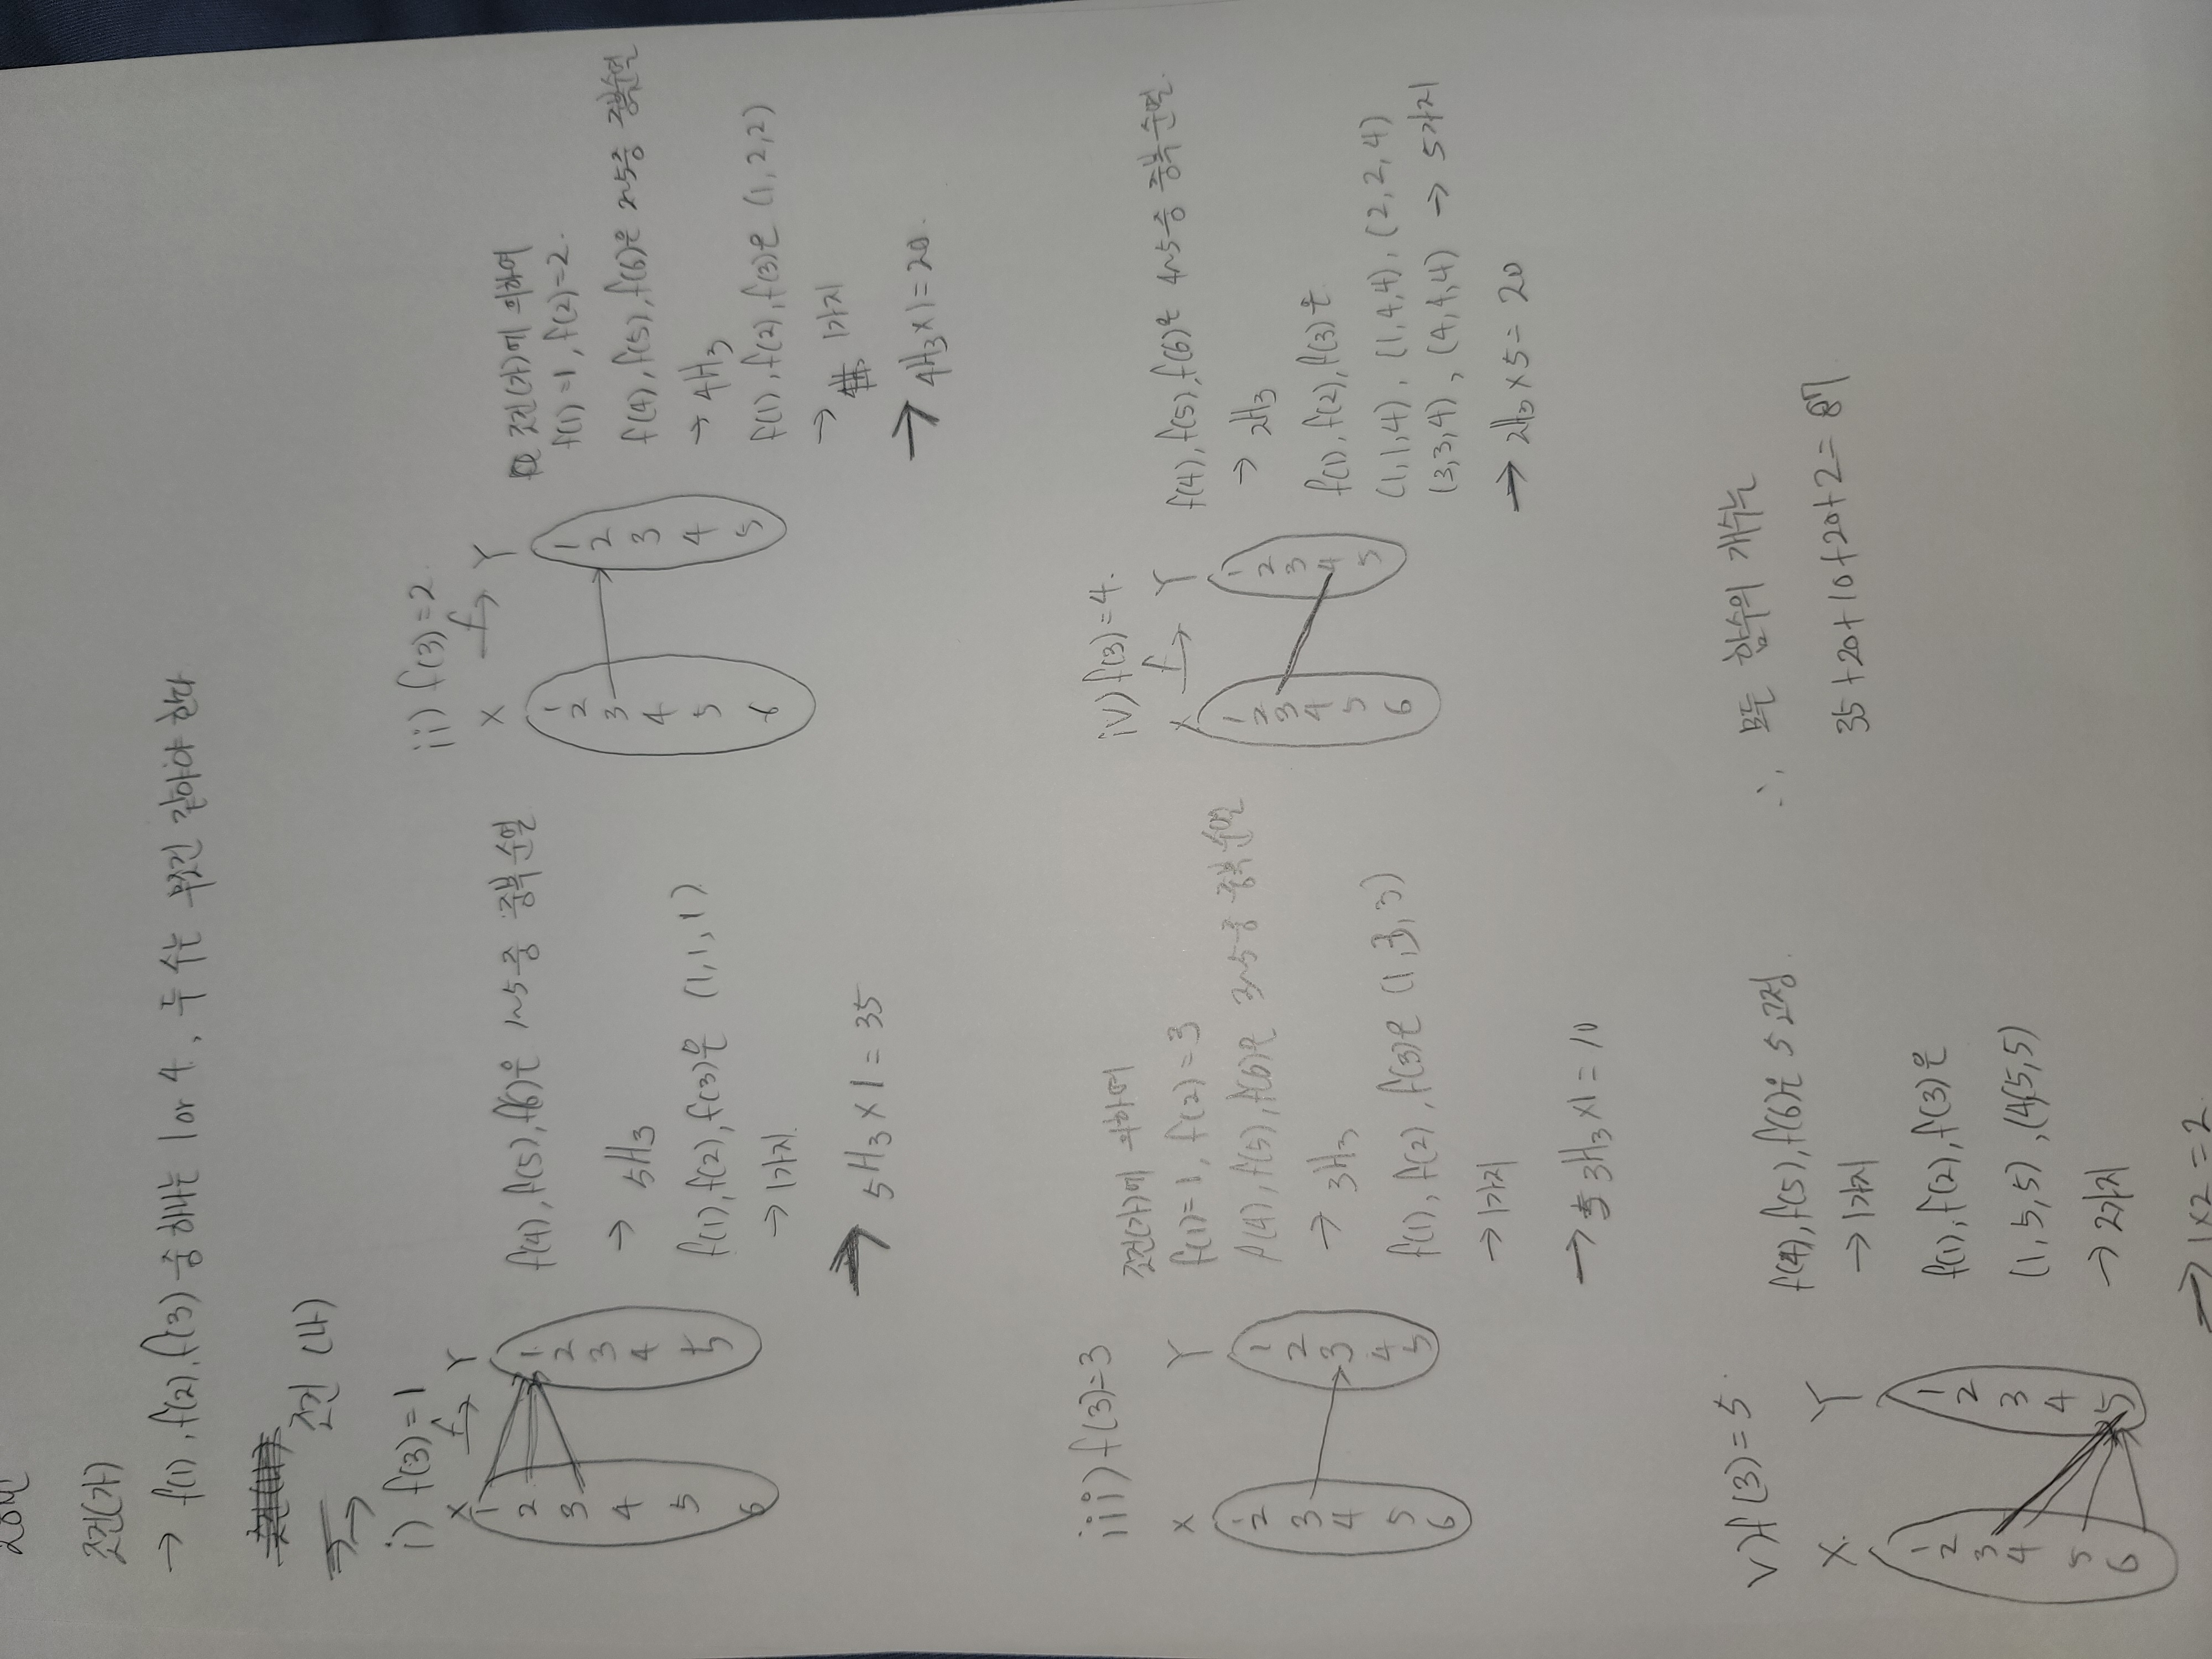 20번
조건(가)
→ f(1), f(2), f(3) 중 하나는 1 or 4, 두 수는 무조건 같아야 한다
조건 (나)
→
i) f(3)=1
X f→ Y
1
2
3
4
5
6
1
2
3
4
5
f(4), f(5), f(6)은 1~5 중 중복 순열
→ 5H3
f(1), f(2), f(3)은 (1, 1, 1)
→ 1가지.
→ 5H3 × 1 = 35
ii) f(3)=2.
X f→ Y
1
2
3
4
5
6
1
2
3
4
5
조건(가)에 의하여
f(1)=1, f(2)=2.
f(4), f(5), f(6)은 2~5중 중복순열
→ 4H3
f(1), f(2), f(3)은 (1, 2, 2)
→ 1가지
→ 4H3×1=20.
iii) f(3)=3
X Y
1
2
3
4
5
6
1
2
3
4
5
조건(가)에 의하여
f(1)=1, f(2)=3
f(4), f(5), f(6)은 3~5 중 중복 순열
→ 3H3
f(1), f(2), f(3)은 (1, 3, 3)
→ 1가지
→ 3H3 ×1 = 10
iv) f(3)=4.
X f→ Y
1
2
3
4
5
6
1
2
3
4
5
f(4), f(5), f(6)은 4~5 중 중복 순열.
→ 2H3
f(1), f(2), f(3)은
(1,1,4), (1,4,4), (2,2,4)
(3,3,4), (4,4,4) → 5가지
→ 2H3 × 5 = 20
v) f(3)=5.
X. Y
1
2
3
4
5
6
1
2
3
4
5
f(4), f(5), f(6)은 5 고정.
→ 1가지
f(1), f(2), f(3)은
(1, 5, 5), (4, 5, 5)
→ 2가지
→ 1×2 = 2.
∴ 모든 함수의 개수는
35+20+10+20+2= 87